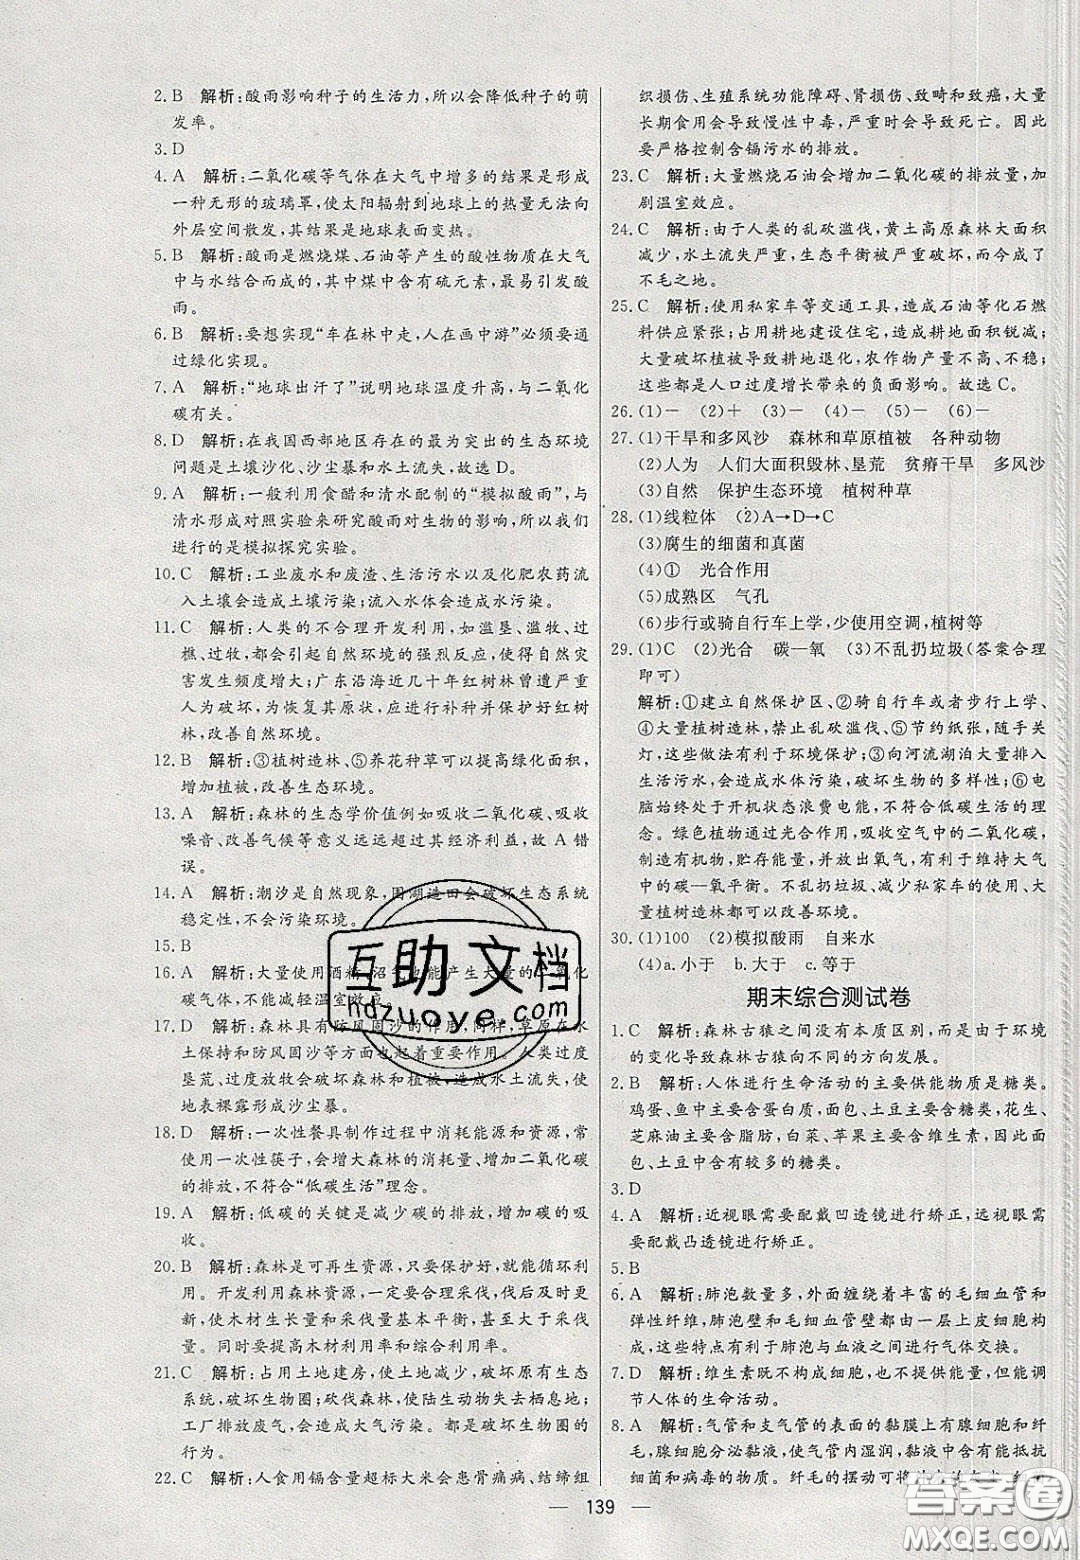 2. B 解析:酸雨影响种子的生活力,所以会降低种子的萌
发率。
3. D
4. A 解析:二氧化碳等气体在大气中增多的结果是形成
一种无形的玻璃罩,使太阳辐射到地球上的热量无法向
外层空间散发,其结果是地球表面变热。
5. B 解析:酸雨是燃烧煤、石油等产生的酸性物质在大气
中与水结合而成的,其中煤中含有硫元素,最易引发酸
雨。
6. B 解析:要想实现“车在林中走,人在画中游”必须要通
过绿化实现。
7. A 解析:“地球出汗了”说明地球温度升高,与二氧化
碳有关。
8. D 解析:在我国西部地区存在的最为突出的生态环境
问题是土壤沙化、沙尘暴和水土流失,故选D。
9. A 解析:一般利用食醋和清水配制的“模拟酸雨”,与
清水形成对照实验来研究酸雨对生物的影响,所以我们
进行的是模拟探究实验。
10. C 解析:工业废水和废渣、生活污水以及化肥农药流
入土壤会造成土壤污染;流入水体会造成水污染。
11. C 解析:人类的不合理开发利用,如滥垦、滥牧、过
樵、过牧,都会引起自然环境的强烈反应,使自然灾
害频度增大;广东沿海近几十年红树林曾遭受严重
人为破坏,为恢复其原状,应进行补种并保护好红树
林,改善自然环境。
12. B 解析:③植树造林、⑤养花种草可以提高绿化面积,
增加植被,改善生态环境。
13. A 解析:森林的生态学价值例如吸收二氧化碳、吸收
噪音、改善气候等意义远远超过其经济利益,故A错
误。
14. A 解析:潮汐是自然现象,围湖造田会破坏生态系统
稳定性,不会污染环境。
15. B
16. A 解析:大量使用酒精、沼气也能产生大量的二氧化
碳气体,不能减轻温室效应。
17. D 解析:森林具有防风固沙的作用,同样,草原在水
土保持和防风固沙等方面也起着重要作用。人类过度
垦荒、过度放牧会破坏森林和植被,造成水土流失,使
地表裸露形成沙尘暴。
18. D 解析:一次性餐具制作过程中消耗能源和资源,常
使用一次性筷子,会增大森林的消耗量,增加二氧化碳
的排放,不符合“低碳生活”理念。
19. A 解析:低碳的关键是减少碳的排放,增加碳的吸
收。
20. B 解析:森林是可再生资源,只要保护好,就能循环利
用。开发利用森林资源,一定要合理采伐,伐后及时更
新,使木材生长量和采伐量基本平衡,以实现永续利
用。同时要提高木材利用率和综合利用率。
21. C 解析:占用土地建房,使土地减少,破坏原有生态
系统,破坏生物圈;砍伐森林,使陆生动物失去栖息地;
工厂排放废气,会造成大气污染。都是破坏生物圈的
行为。
22. C 解析:人食用镉含量超标大米会患骨痛病、结缔组
织损伤、生殖系统功能障碍、肾损伤、致畸和致癌,大量
长期食用会导致慢性中毒,严重时会导致死亡。因此
要严格控制含镉污水的排放。
23. C 解析:大量燃烧石油会增加二氧化碳的排放量,加
剧温室效应。
24. C 解析:由于人类的乱砍滥伐,黄土高原森林大面积
减少,水土流失严重,生态平衡被严重破坏,变成了
不毛之地。
25. C 解析:使用私家车等交通工具,造成石油等化石燃
料供应紧张;占用耕地建设住宅,造成耕地面积锐减;
大量破坏植被导致耕地退化,农作物产量不高、不稳;
这些都是人口过度增长带来的负面影响。故选C。
26. (1)- (2)+ (3)- (4)- (5)- (6)-
27. (1)干旱和多风沙 森林和草原植被 各种动物
(2)人为 人们大面积毁林、垦荒 贫瘠干旱 多风沙
(3)自然 保护生态环境 植树种草
28. (1)线粒体 (2)A→D→C
(3)腐生的细菌和真菌
(4)① 光合作用
(5)成熟区 气孔
(6)步行或骑自行车上学,少使用空调,植树等
29. (1)C (2)光合 碳—氧 (3)不乱扔垃圾(答案合理
即可)
解析:①建立自然保护区、②骑自行车或者步行上学、
④大量植树造林、禁止乱砍滥伐、⑤节约纸张,随手关
灯,这些做法有利于环境保护;③向河流湖泊大量排放
生活污水,会造成水体污染,破坏生物的多样性;⑥电
脑始终处于开机状态浪费电能,不符合低碳生活的理
念。绿色植物通过光合作用,吸收空气中的二氧化碳,
制造有机物,贮存能量,并放出氧气,有利于维持大气
中的碳—氧平衡。不乱扔垃圾、减少私家车的使用、大
量植树造林都可以改善环境。
30. (1)100 (2)模拟酸雨 自来水
(4)a.小于 b.大于 c.等于
期末综合测试卷
1. C 解析:森林古猿之间没有本质区别,而是由于环境
的变化导致森林古猿向不同的方向发展。
2. B 解析:人体进行生命活动的主要供能物质是糖类。
鸡蛋、鱼中主要含蛋白质,面包、土豆主要含糖类,花生、
芝麻油主要含脂肪,白菜、苹果主要含维生素,因此面
包、土豆中含有较多的糖类。
3. D
4. A 解析:近视眼需要配戴凹透镜进行矫正,远视眼需
要配戴凸透镜进行矫正。
5. B
6. A 解析:肺泡数量多,外面缠绕着丰富的毛细血管和
弹性纤维,肺泡壁和毛细血管壁都由一层上皮细胞构
成,这些特点有利于肺泡与血液之间进行气体交换。
7. D 解析:维生素既不构成细胞,也不提供能量,但能调
节人体的生命活动。
8. A 解析:气管和支气管的表面的黏膜上有腺细胞和纤
毛,腺细胞分泌黏液,使气管内湿润,黏液中含有能抵抗
细菌和病毒的物质。纤毛的摆动可将
139
互助文档
hdzuoye.com
答案圈
MXQE.COM